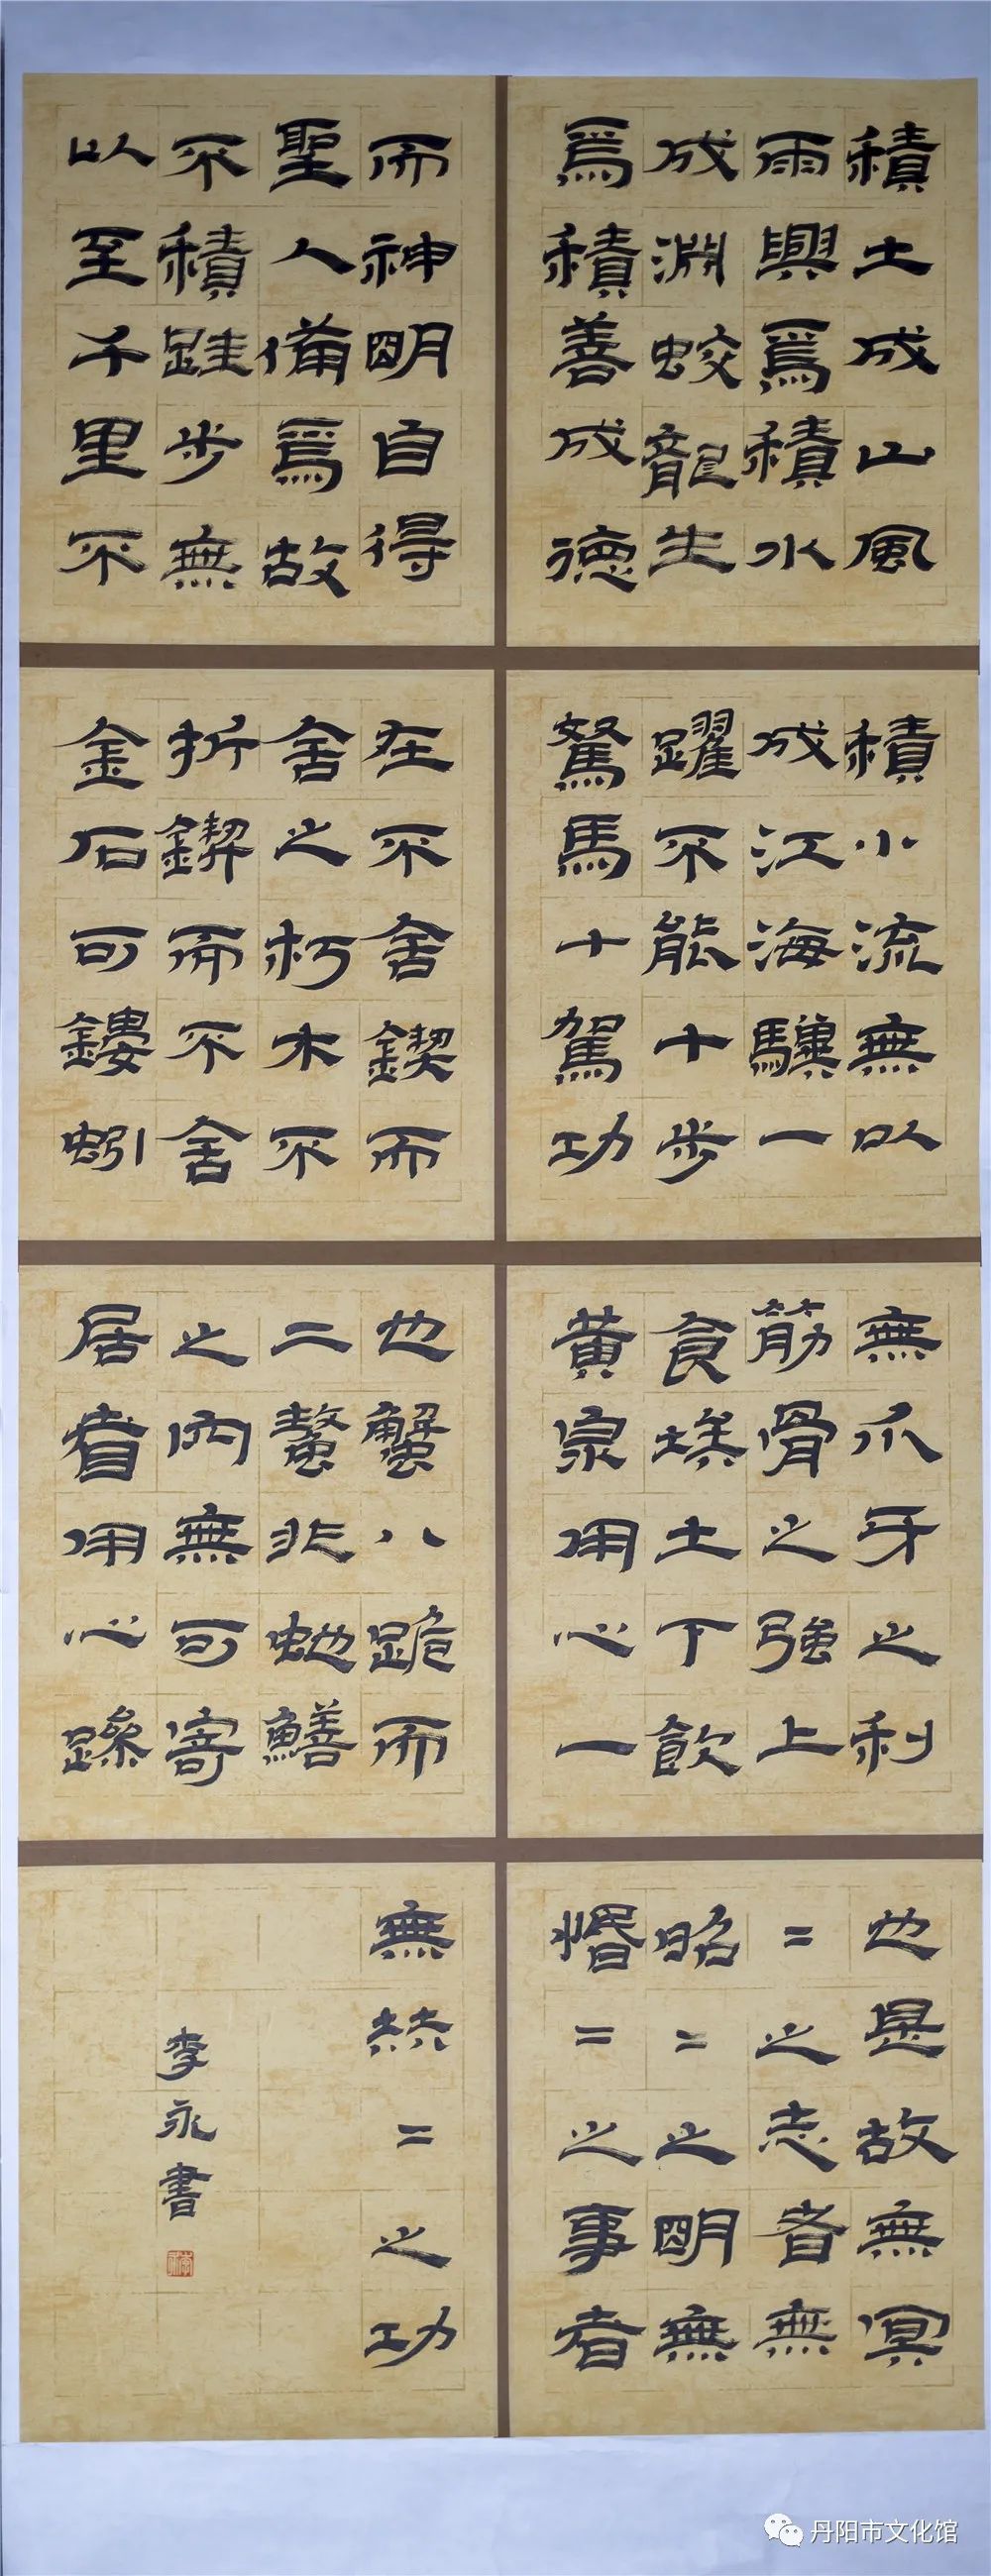 積土成山風
雨興焉積水
成淵蛟龍生
焉積善成德
而神明自得
聖人備焉故
不積跬步無
以至千里不
積小流無以
成江海騏驥一
躍不能十步
駑馬十駕功
在不舍鍥而
舍之朽木不
折鍥而不舍
金石可鏤蚓
無爪牙之利
筋骨之強上
食埃土下飲
黃泉用心一
也蟹八跪而
二螯非虵鱔
之內無可寄
居者用心躁
也是故無冥
=之志者無
昭=之明無
惛=之事者
無赫=之功
李永書
丹阳市文化馆